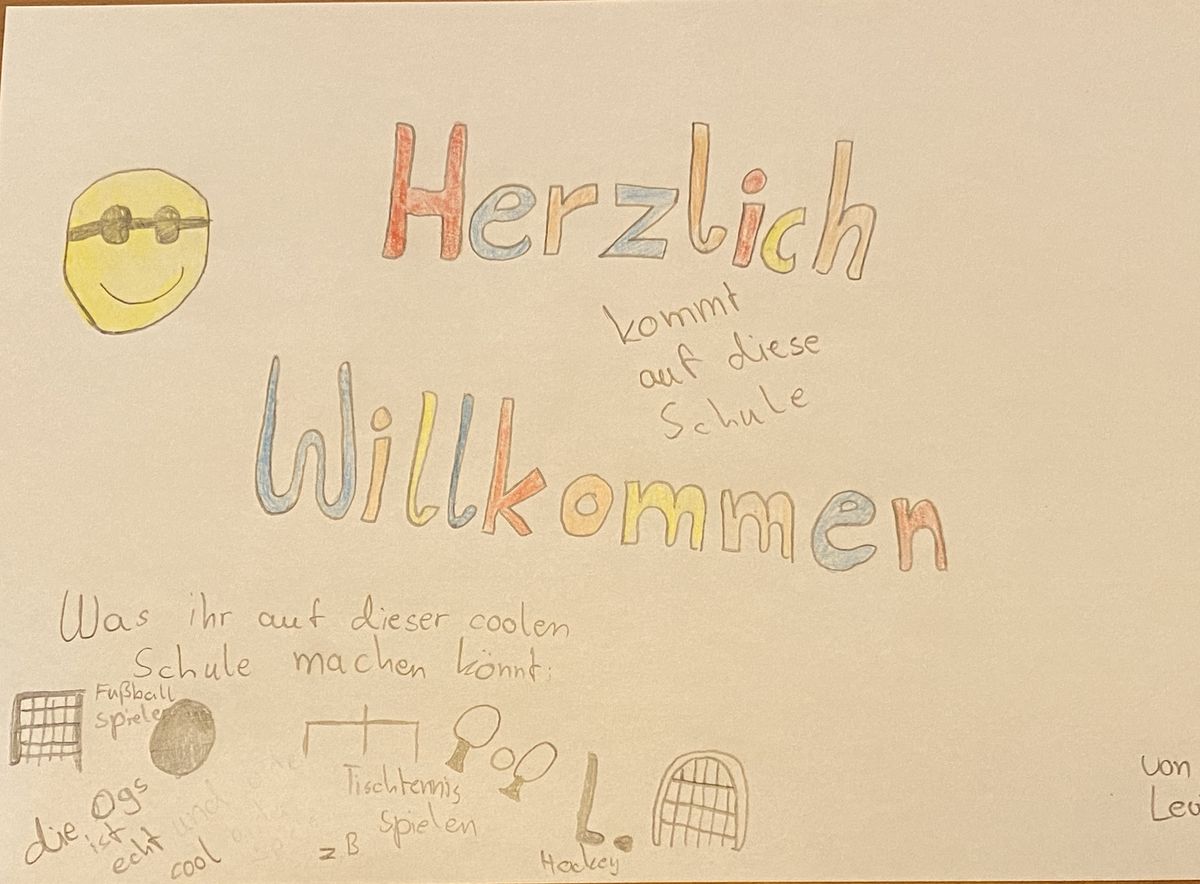 Herzlich
kommt
auf diese
Schule
Willkommen
Was ihr auf dieser coolen
Schule machen könnt:
Fußball
spielen
Tischtennis
spielen
z B
Hockey
die Ogs
ist
echt
cool
und
von